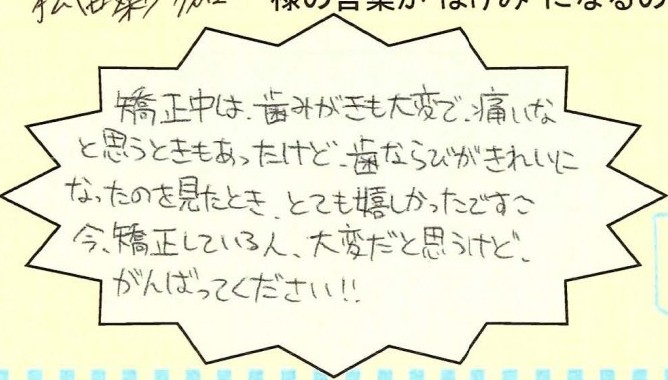 様の言葉が"はげみ"になるの
矯正中は、歯みがきも大変で、痛いな
と思うときもあったけど、歯ならびがきれいに
なったのを見たとき、とても嬉しかったです。
今、矯正している人、大変だと思うけど、
がんばってください!!